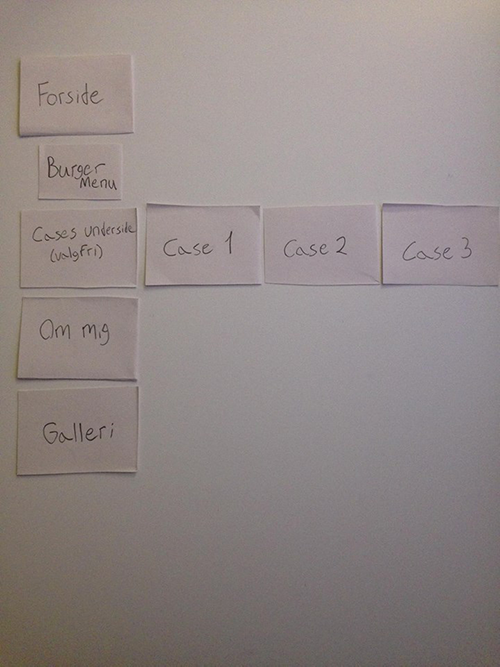 Forside
Burger
Menu
Cases Underside
(valgfri)
Case 1
Case 2
Case 3
Om mig
Galleri